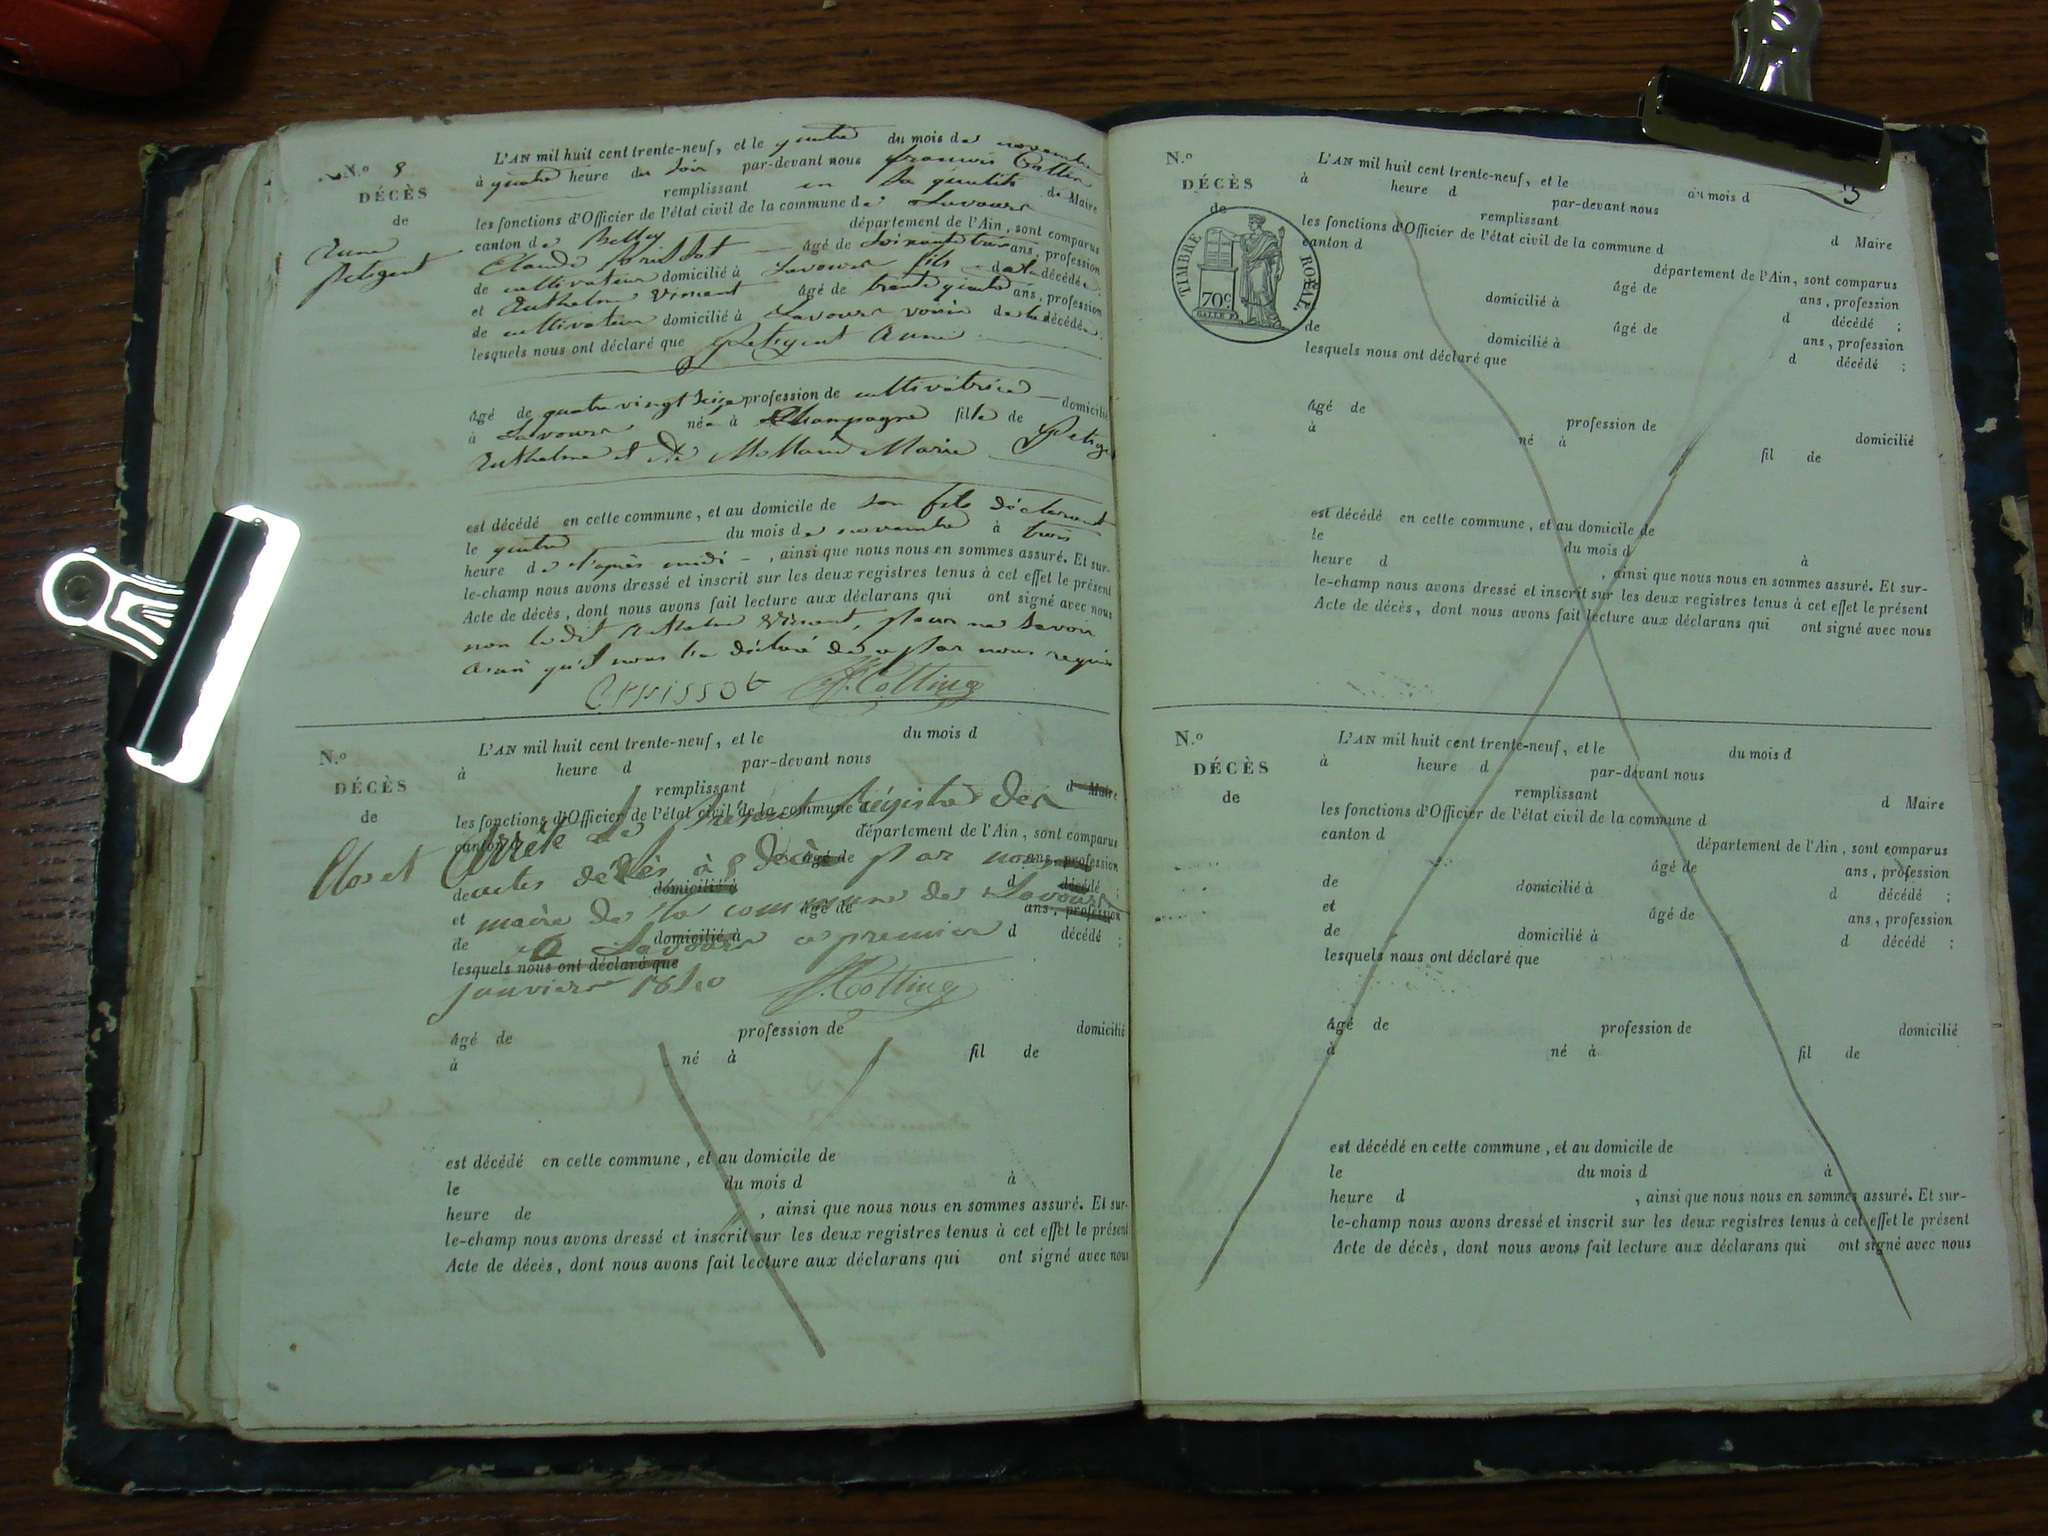 N.o 8
DÉCÈS
de
Anne
Petigent
L'AN mil huit cent trente-neuf, et le quatre du mois de novembre
à quatre heure du soir par-devant nous françois
remplissant en sa qualité de Maire
les fonctions d'Officier de l'état civil de la commune de Lavours
canton de Belley département de l'Ain, sont comparus
Claude âgé de soixante trois ans, profession
de cultivateur domicilié à Lavours fils de la décédée ;
et Anthelme Vincent âgé de trente quatre ans, profession
de cultivateur domicilié à Lavours voisin de la décédée ;
lesquels nous ont déclaré que Petigent Anne
âgé de quatre vingt seize profession de cultivatrice domicilié
à Lavours née à Champagne fille de
Anthelme et de Marie
est décédé en cette commune, et au domicile de son fils déclarant
le quatre du mois de novembre à trois
heure de l'après midi , ainsi que nous nous en sommes assuré. Et sur-
le-champ nous avons dressé et inscrit sur les deux registres tenus à cet effet le présent
Acte de décès, dont nous avons fait lecture aux déclarans qui ont signé avec nous
non ledit Anthelme Vincent, pour ne savoir
ainsi qu'il nous l'a déclaré de ce par nous requis
N.o
DÉCÈS
de
Clos et
L'AN mil huit cent trente-neuf, et le du mois d
à heure d par-devant nous
remplissant d Maire
les fonctions d'Officier de l'état civil de la commune d
canton d département de l'Ain, sont comparus
Arrêté le présent régistre des
âgé de ans, profession
de domicilié à d décédé ;
actes de décès à 8 décès par nous
et âgé de ans, profession
maire de la commune de Lavours
de domicilié à d décédé ;
à Lavours ce premier
lesquels nous ont déclaré que
janvier 1840
âgé de profession de domicilié
à né à fil de
est décédé en cette commune, et au domicile de
le du mois d à
heure de , ainsi que nous nous en sommes assuré. Et sur-
le-champ nous avons dressé et inscrit sur les deux registres tenus à cet effet le présent
Acte de décès, dont nous avons fait lecture aux déclarans qui ont signé avec nous
N.o
DÉCÈS
de
TIMBRE ROYAL.
70c
5
L'AN mil huit cent trente-neuf, et le du mois d
à heure d par-devant nous
remplissant d Maire
les fonctions d'Officier de l'état civil de la commune d
canton d département de l'Ain, sont comparus
âgé de ans, profession
domicilié à d décédé ;
âgé de ans, profession
de domicilié à d décédé ;
lesquels nous ont déclaré que
âgé de profession de domicilié
à né à fil de
est décédé en cette commune, et au domicile de
le du mois d à
heure d , ainsi que nous nous en sommes assuré. Et sur-
le-champ nous avons dressé et inscrit sur les deux registres tenus à cet effet le présent
Acte de décès, dont nous avons fait lecture aux déclarans qui ont signé avec nous
N.o
DÉCÈS
de
L'AN mil huit cent trente-neuf, et le du mois d
à heure d par-devant nous
remplissant d Maire
les fonctions d'Officier de l'état civil de la commune d
canton d département de l'Ain, sont comparus
âgé de ans, profession
de domicilié à d décédé ;
et âgé de ans, profession
de domicilié à d décédé ;
lesquels nous ont déclaré que
âgé de profession de domicilié
à né à fil de
est décédé en cette commune, et au domicile de
le du mois d à
heure d , ainsi que nous nous en sommes assuré. Et sur-
le-champ nous avons dressé et inscrit sur les deux registres tenus à cet effet le présent
Acte de décès, dont nous avons fait lecture aux déclarans qui ont signé avec nous